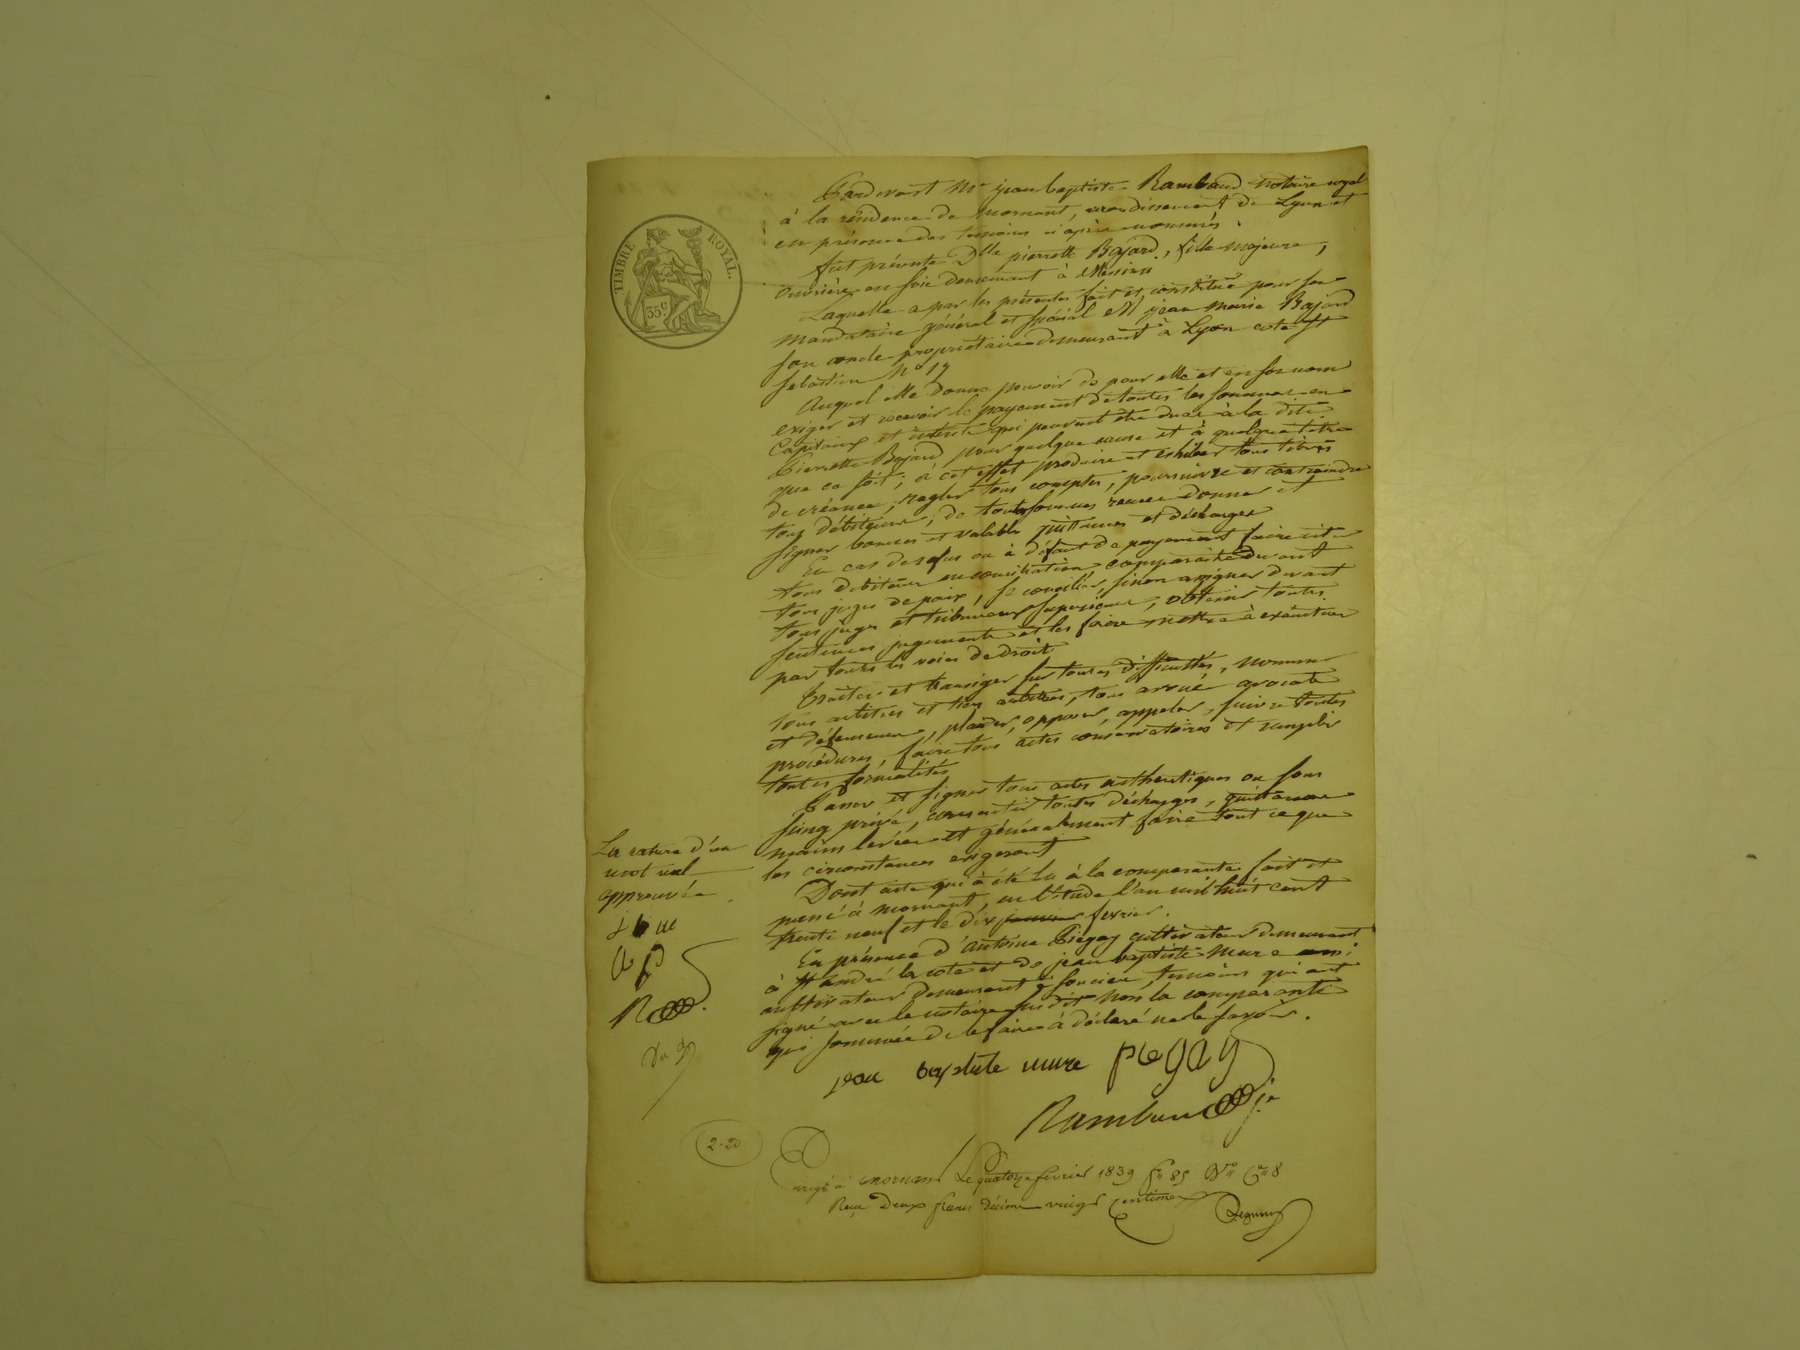 TIMBRE ROYAL.
35c
Pardevant Me jean baptiste Rambaud notaire royal
à la résidence de mornant, arrondissement de Lyon et
en présence des temoins ci après nommés
fut présente Dlle pierrette Bajard, fille majeure,
ouvrière en soie demeurant à
Laquelle a par les présentes fait et constitué pour son
mandataire général et spécial M jean marie Bajard
son oncle propriétaire demeurant à Lyon cote St
sebastien No 17
Auquel elle donne pouvoir de pour elle et en son nom
exiger et recevoir le payement de toutes les sommes en
Capitaux et intérêts qui peuvent être dues à la dite
Pierrette Bajard pour quelque cause et à quelque titre
que ce soit; à cet effet produire et exhiber tous titres
de créance, regler tous comptes, poursuivre et contraindre
tous débiteurs; de toutes sommes reçues donner et
signer bonnes et valables quittances et décharges
En cas de refus ou à défaut de payement faire citer
tous debiteurs en conciliation, comparaitre devant
tous juges de paix, se concilier, sinon assigner devant
tous juges et tribunaux superieurs, obtenir toutes
sentences jugements et les faire mettre à exécution
par toutes les voies de droit
Traiter et transiger sur toutes difficultés, nommer
tous arbitres et tiers arbitres, tous avoué avocats
et défenseurs, plaider, opposer, appeler, suivre toutes
procédures, faire tous actes conservatoires et remplir
toutes formalités
Passer et signer tous actes authentiques ou sous
seing privé, consentir toutes décharges, quittances
mains levées et généralement faire tout ce que
les circonstances exigeront
Dont acte qui à été lu à la comparante fait et
passé à mornant, en l'étude l'an mil huit cent
trente neuf et le dix janvier fevrier.
En présence d'antoine Piegay cultivateur demeurant
à St andré la cote et de jean baptiste mure
cultivateur demeurant à soucieu, temoins qui ont
signé avec le notaire susdit non la comparante
qui sommée de le faire à déclaré ne le savoir.
La rature d'un
mot nul
approuvée
j b m
R
jean baptiste mure piegay
Rambaud
2-20
Enregé à mornant Le quatorze février 1839 fo 85 Vo Ce 8
Reçu Deux francs décime vingt Centimes